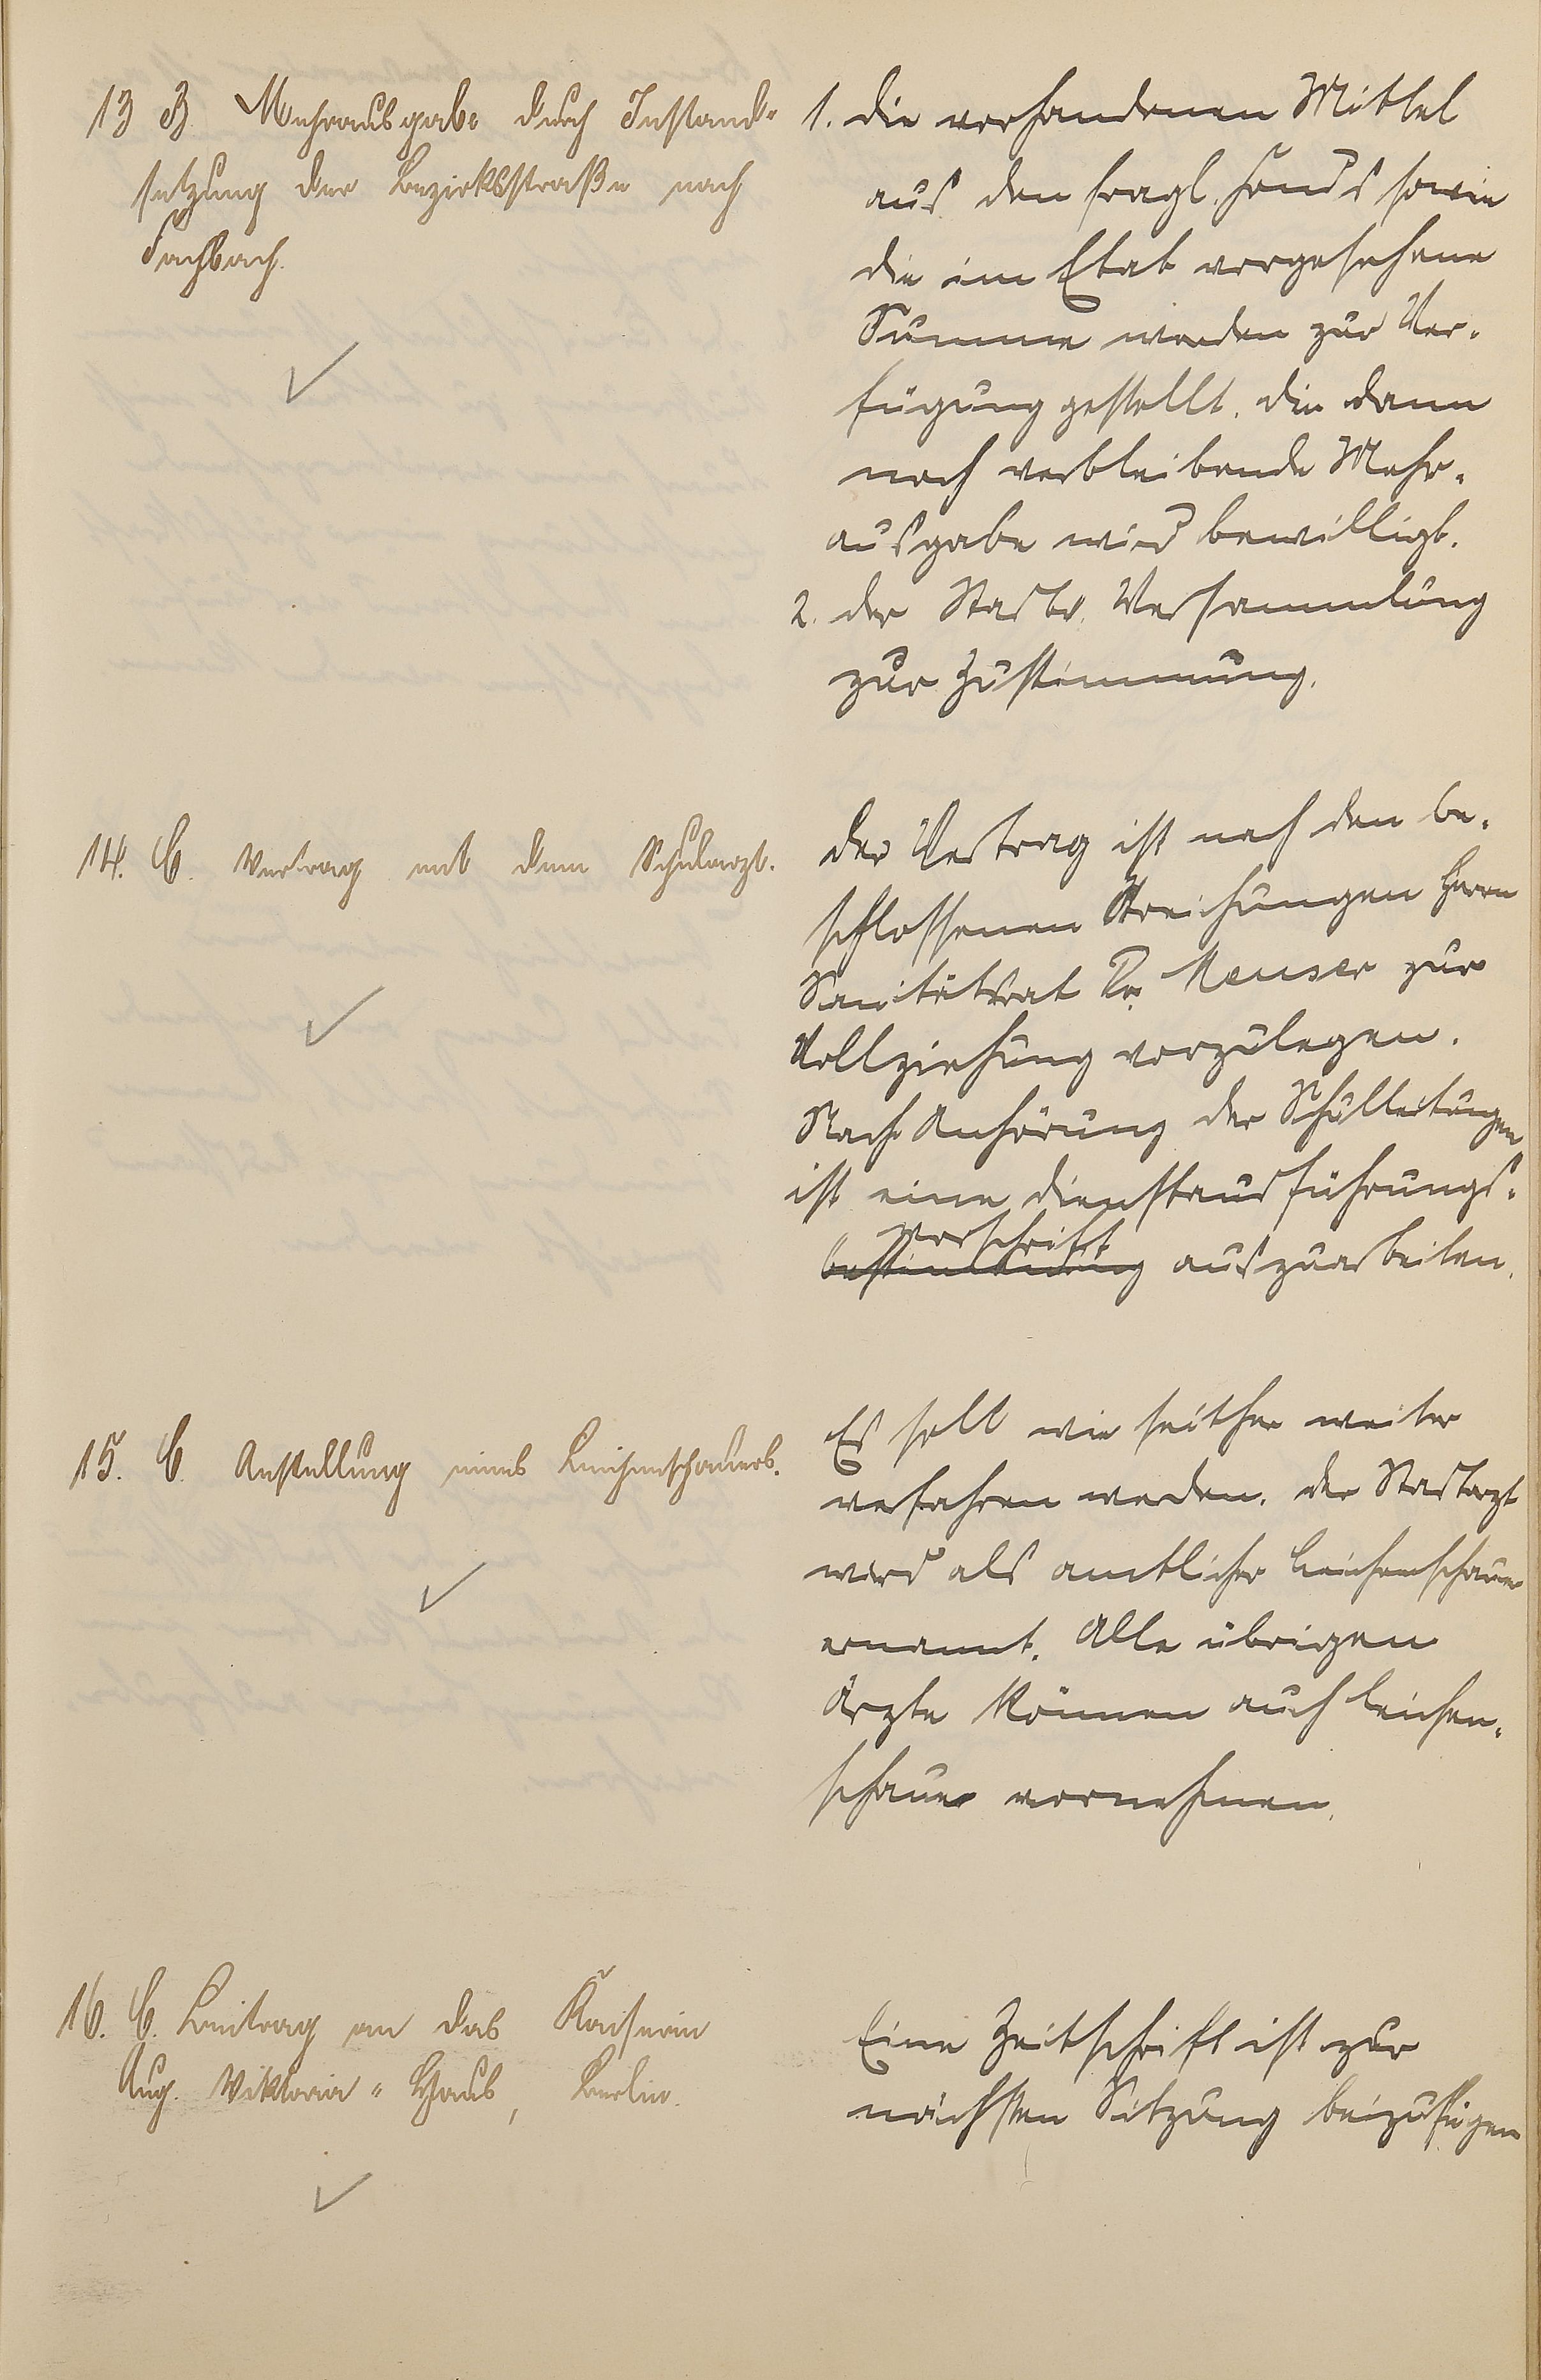 13 B. Mehrausgabe durch Instand-
setzung der Bezirksstraße nach
Fachbach.
1. Die vorhandenen Mittel
aus den fragl. Fonds sowie
die im Etat vorgesehene
Summe werden zur Ver-
fügung gestellt. Die dann
noch verbleibende Mehr-
ausgabe wird bewilligt.
2. Der Stadtv. Versammlung
zur Zustimmung.
14. C. Vertrag mit dem Schularzt.
Der Vertrag ist nach den be-
schlossenen Streichungen Herrn
Sanitätsrat Dr. Meuser zur
Vollziehung vorzulegen.
Nach Anhörung der Schulleitungen
ist eine Dienstausführungs-
vorschrift
bestimmung auszuarbeiten.
15. C. Anstellung eines Leichenschauers.
Es soll wie seither weiter
verfahren werden. Der Stadtarzt
wird als amtlicher Leichenschauer
ernannt. Alle übrigen
Ärzte können auch Leichen-
schauen vornehmen.
16. C. Beitrag an das Kaiserin
Aug. Viktoria-Haus, Berlin.
Eine Zeitschrift ist zur
nächsten Sitzung beizufügen